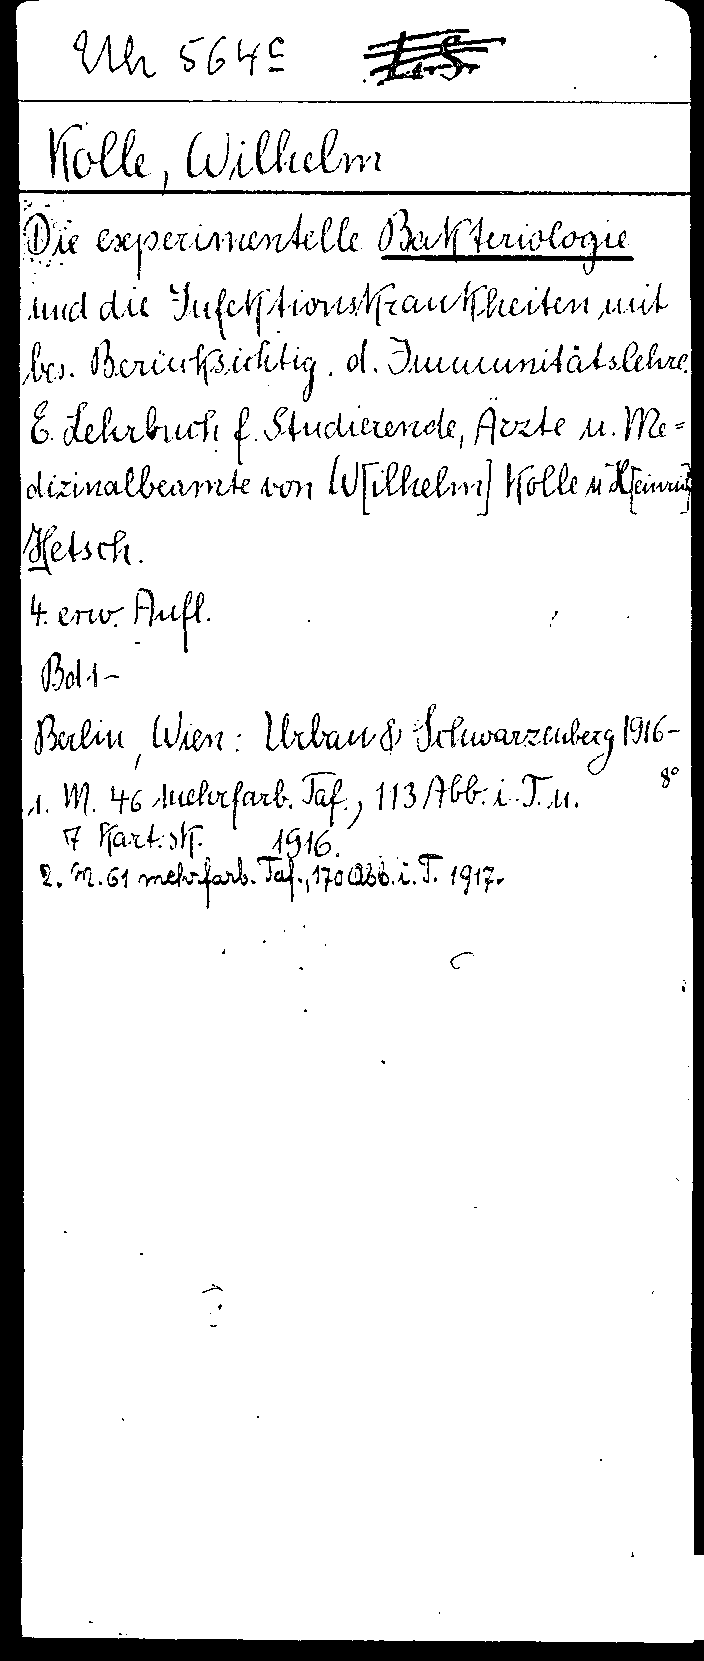 Uh 564c L.S.
Kolle, Wilhelm
Die experimentelle Bakteriologie
und die Infektionskrankheiten mit
bes. Berücksichtig. d. Immunitätslehre.
E. Lehrbuch f. Studierende, Ärzte u. Me=
dizinalbeamte von W[ilhelm] Kolle u. H[einrich]
Hetsch.
4. erw. Aufl.
Bd 1-
Berlin, Wien: Urban & Schwarzenberg 1916-
8°
1. M. 46 mehrfarb. Taf., 113 Abb. i. T. u.
7 Kart.sk. 1916.
2. M. 61 mehrfarb. Taf., 170 Abb. i. T. 1917.